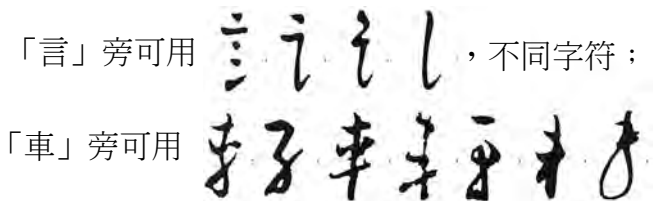 「言」旁可用 ，不同字符；
「車」旁可用